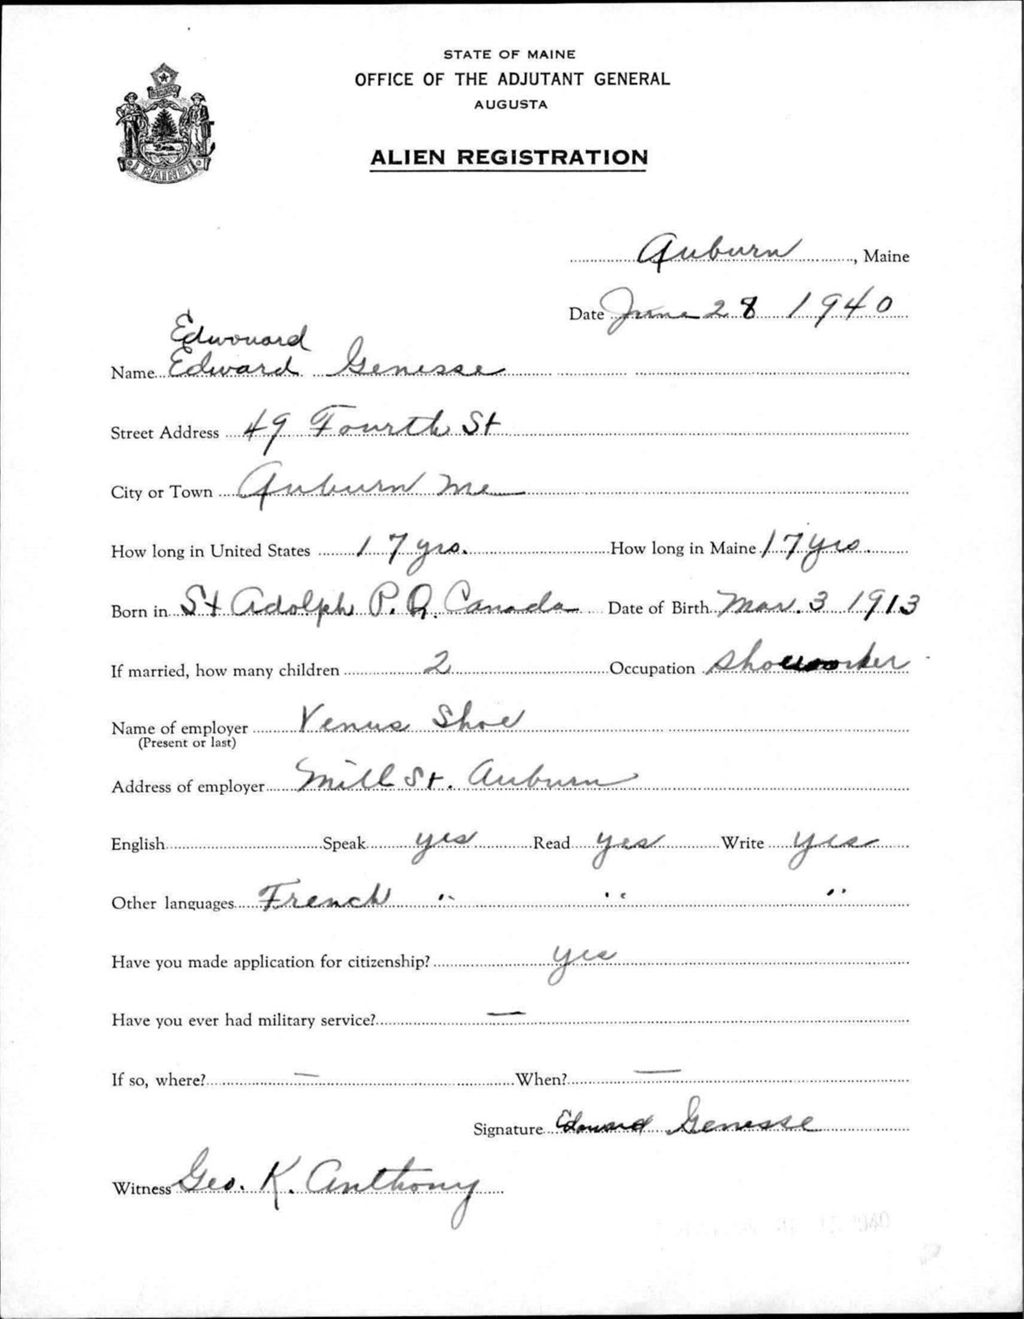 STATE OF MAINE
OFFICE OF THE ADJUTANT GENERAL
AUGUSTA
ALIEN REGISTRATION
MAINE
Auburn, Maine
Date June 28 1940
Edwouard
Name Edward Genesse
Street Address 49 Fourth St
City or Town Auburn Me
How long in United States 17 yrs. How long in Maine 17 yrs.
Born in St Adolph P. Q. Canada Date of Birth Mar. 3 1913
If married, how many children 2 Occupation Shoeworker
Name of employer Venus Shoe
(Present or last)
Address of employer Mill St. Auburn
English Speak yes Read yes Write yes
Other languages French " " "
Have you made application for citizenship? yes
Have you ever had military service? —
If so, where? — When? —
Signature Edward Genesse
Witness Geo. K. Anthony